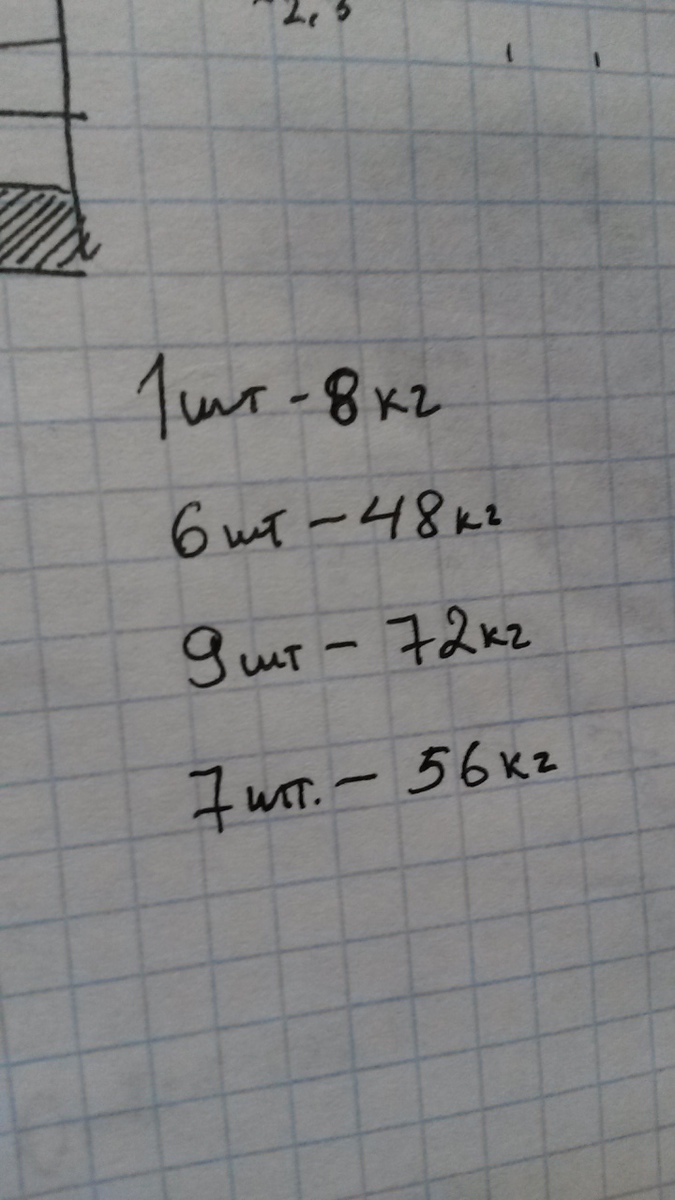 2,5
1шт - 8кг
6шт - 48кг
9шт - 72кг
7шт. - 56кг